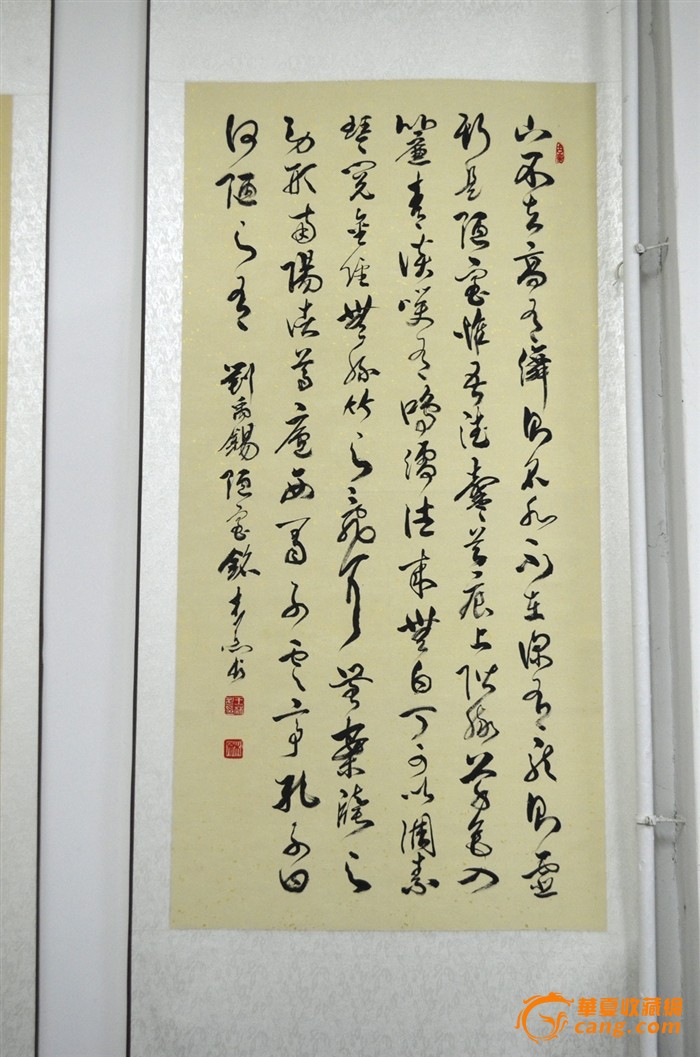 山不在高有僊則名水不在深有龍則靈
斯是陋室惟吾德馨苔痕上階綠草色入
簾青談笑有鴻儒往來無白丁可以調素
琴閱金經無絲竹之亂耳無案牘之
勞形南陽諸葛廬西蜀子雲亭孔子曰
何陋之有 劉禹錫陋室銘
華夏收藏網
cang.com